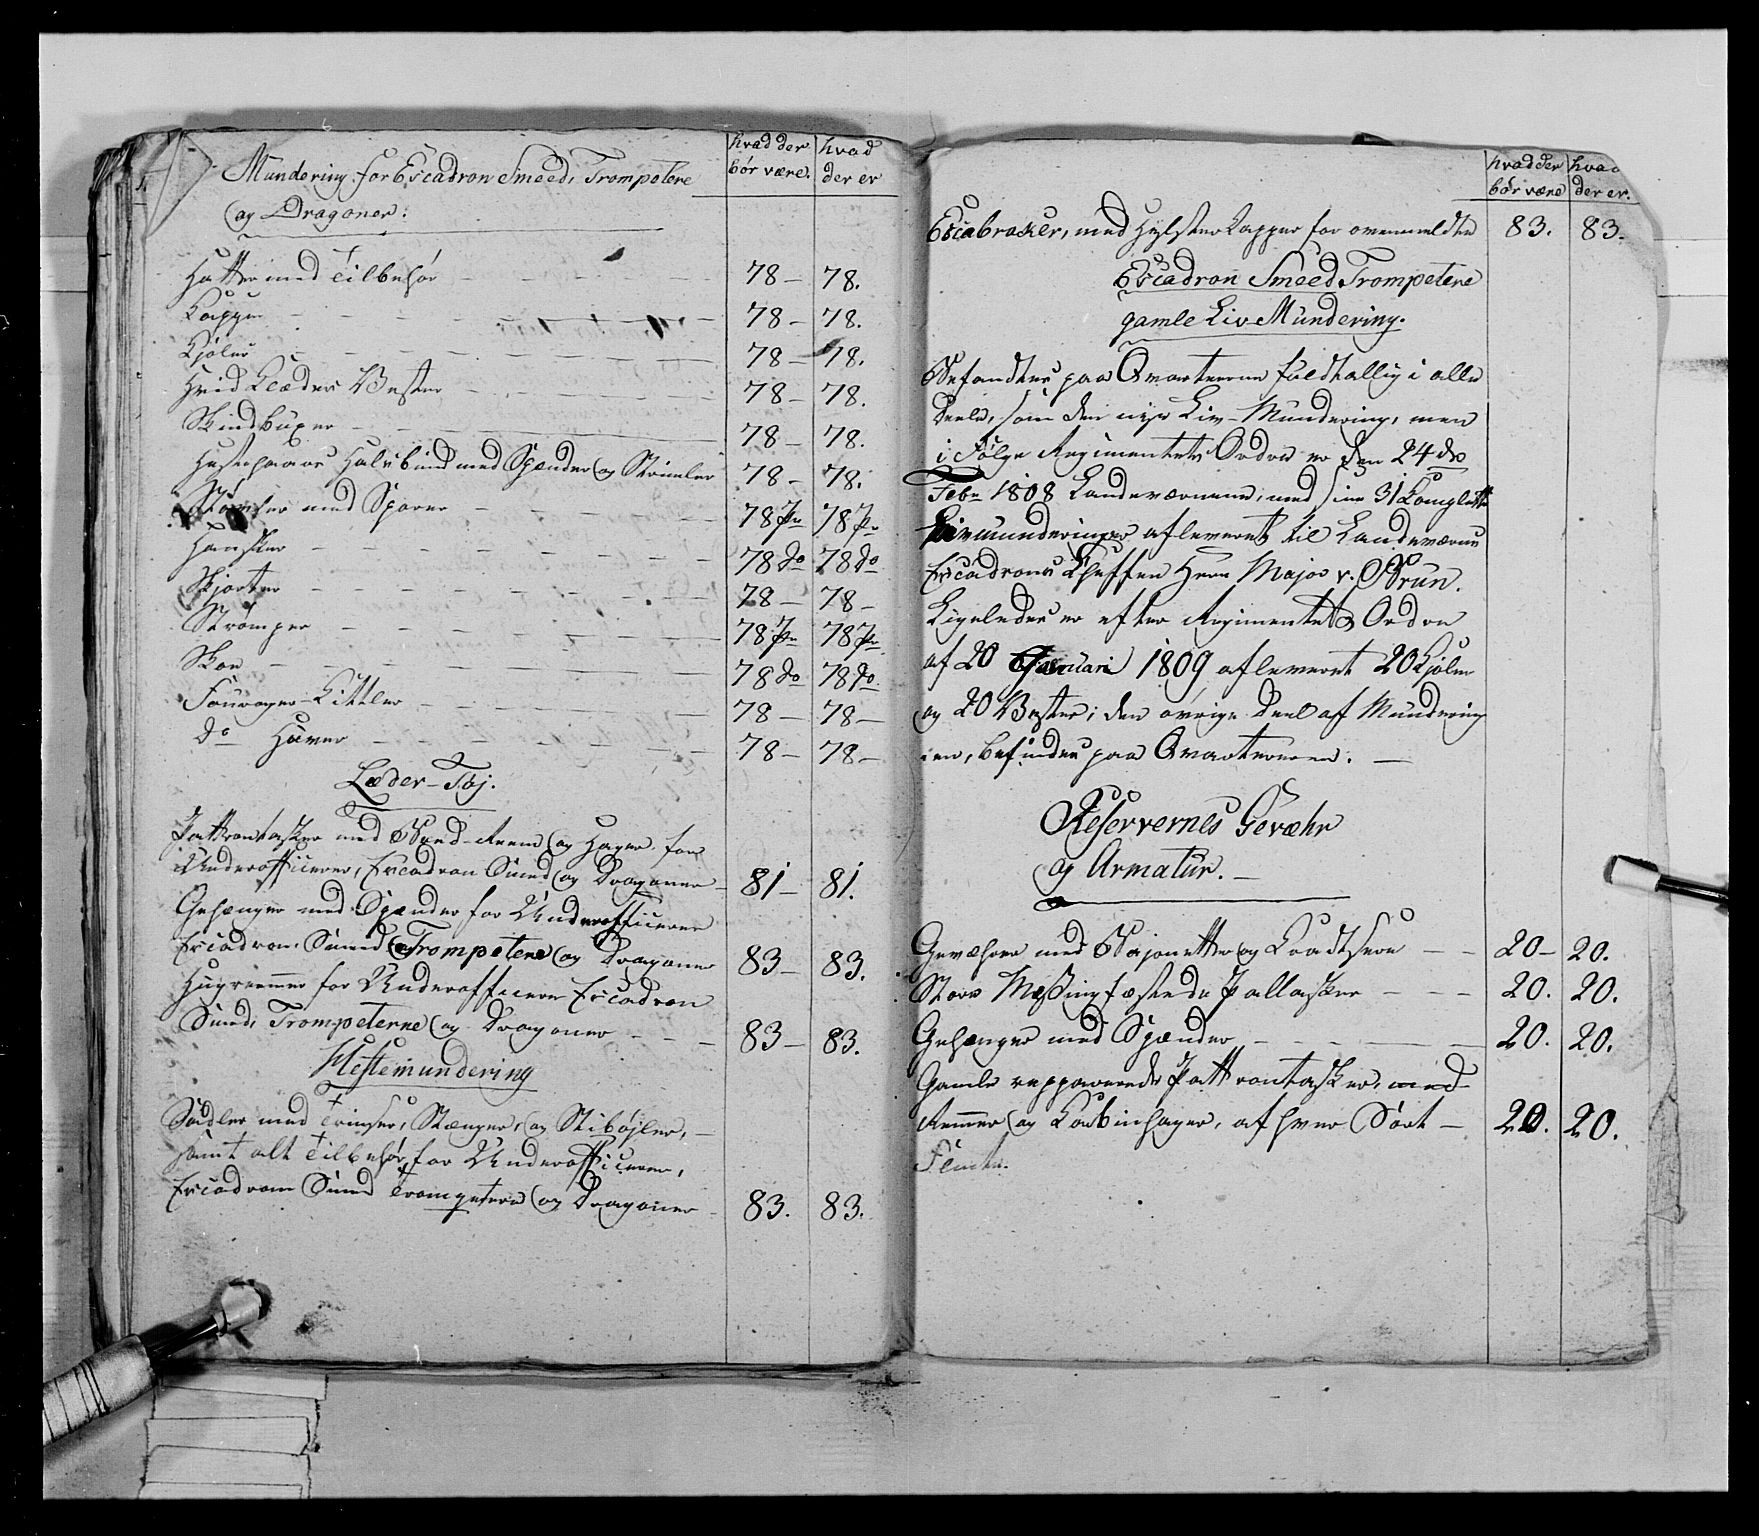 Mundering for Escadron Smeed, Trompetere
og Dragoner.
hvad der bør være. hvad der er
Hatte med Tilbehør 78 – 78.
Kapper 78 – 78.
Kjoler 78 – 78.
Hvid Klædes Vester 78 – 78.
Skindbuxer 78 – 78.
Hestehaars Halsbind med Spænder og Strimler 78 – 78.
Støvler med Sporer 78 Pr 78 Pr
Handsker 78 do 78 do
Skjorter 78 – 78 –
Strømper 78 Pr 78 Pr
Skoe 78 do 78 do
Fourager-Kittler 78 – 78 –
do Huver 78 – 78 –
Læder-Tøj.
Pattrontasker med Rem og Hager for
Underofficerer, Escadron Smed og Dragoner 81 – 81.
Gehænger med Spænder for Underofficerer
Escadron Smed Trompetere og Dragoner 83 – 83.
Hugremmer for Underofficerer Escadron
Smed, Trompeterne og Dragoner 83 – 83.
Hestemundering
Sadler med Trinser, Stænger, og Stibøjler,
samt alt Tilbehør, for Underofficerer,
Escadron Smed Trompetere og Dragoner 83. 83.
hvad der bør være hvad der er.
Escabraker, med Hylster Kapper for ovenmeldte 83. 83.
Escadron Smeed Trompetere
gamle Liv Mundering.
Befandtes paa Qvarterene fuldtallig i alle
Deele, som den nye Liv-Mundering, men
i Følge Regimentets Ordre er den 24de
Febr 1808 Landeværnene, med sine 31 Complette
Livmunderinger afleveret til Landeværns
Escadrons Cheffen Herr Major v. Brun.
Ligeledes er efter Regimentets Ordre
af 20 Januari 1809 afleveret 20 Kjoler
og 20 Vester; den øvrige Deel af Munderin
gen, befindes paa Qvartererne.
Reservernes Gevæhr
og Armatur.
Gevæhrer med Bajonetter og Kradtsere 20 – 20.
Store Messing fæstede Pallasker 20. 20.
Gehænger med Spænder 20. 20.
Gamle repparerede Pattrontasker, med
Remmer og Karbinhager, af hver Sort 20. 20.